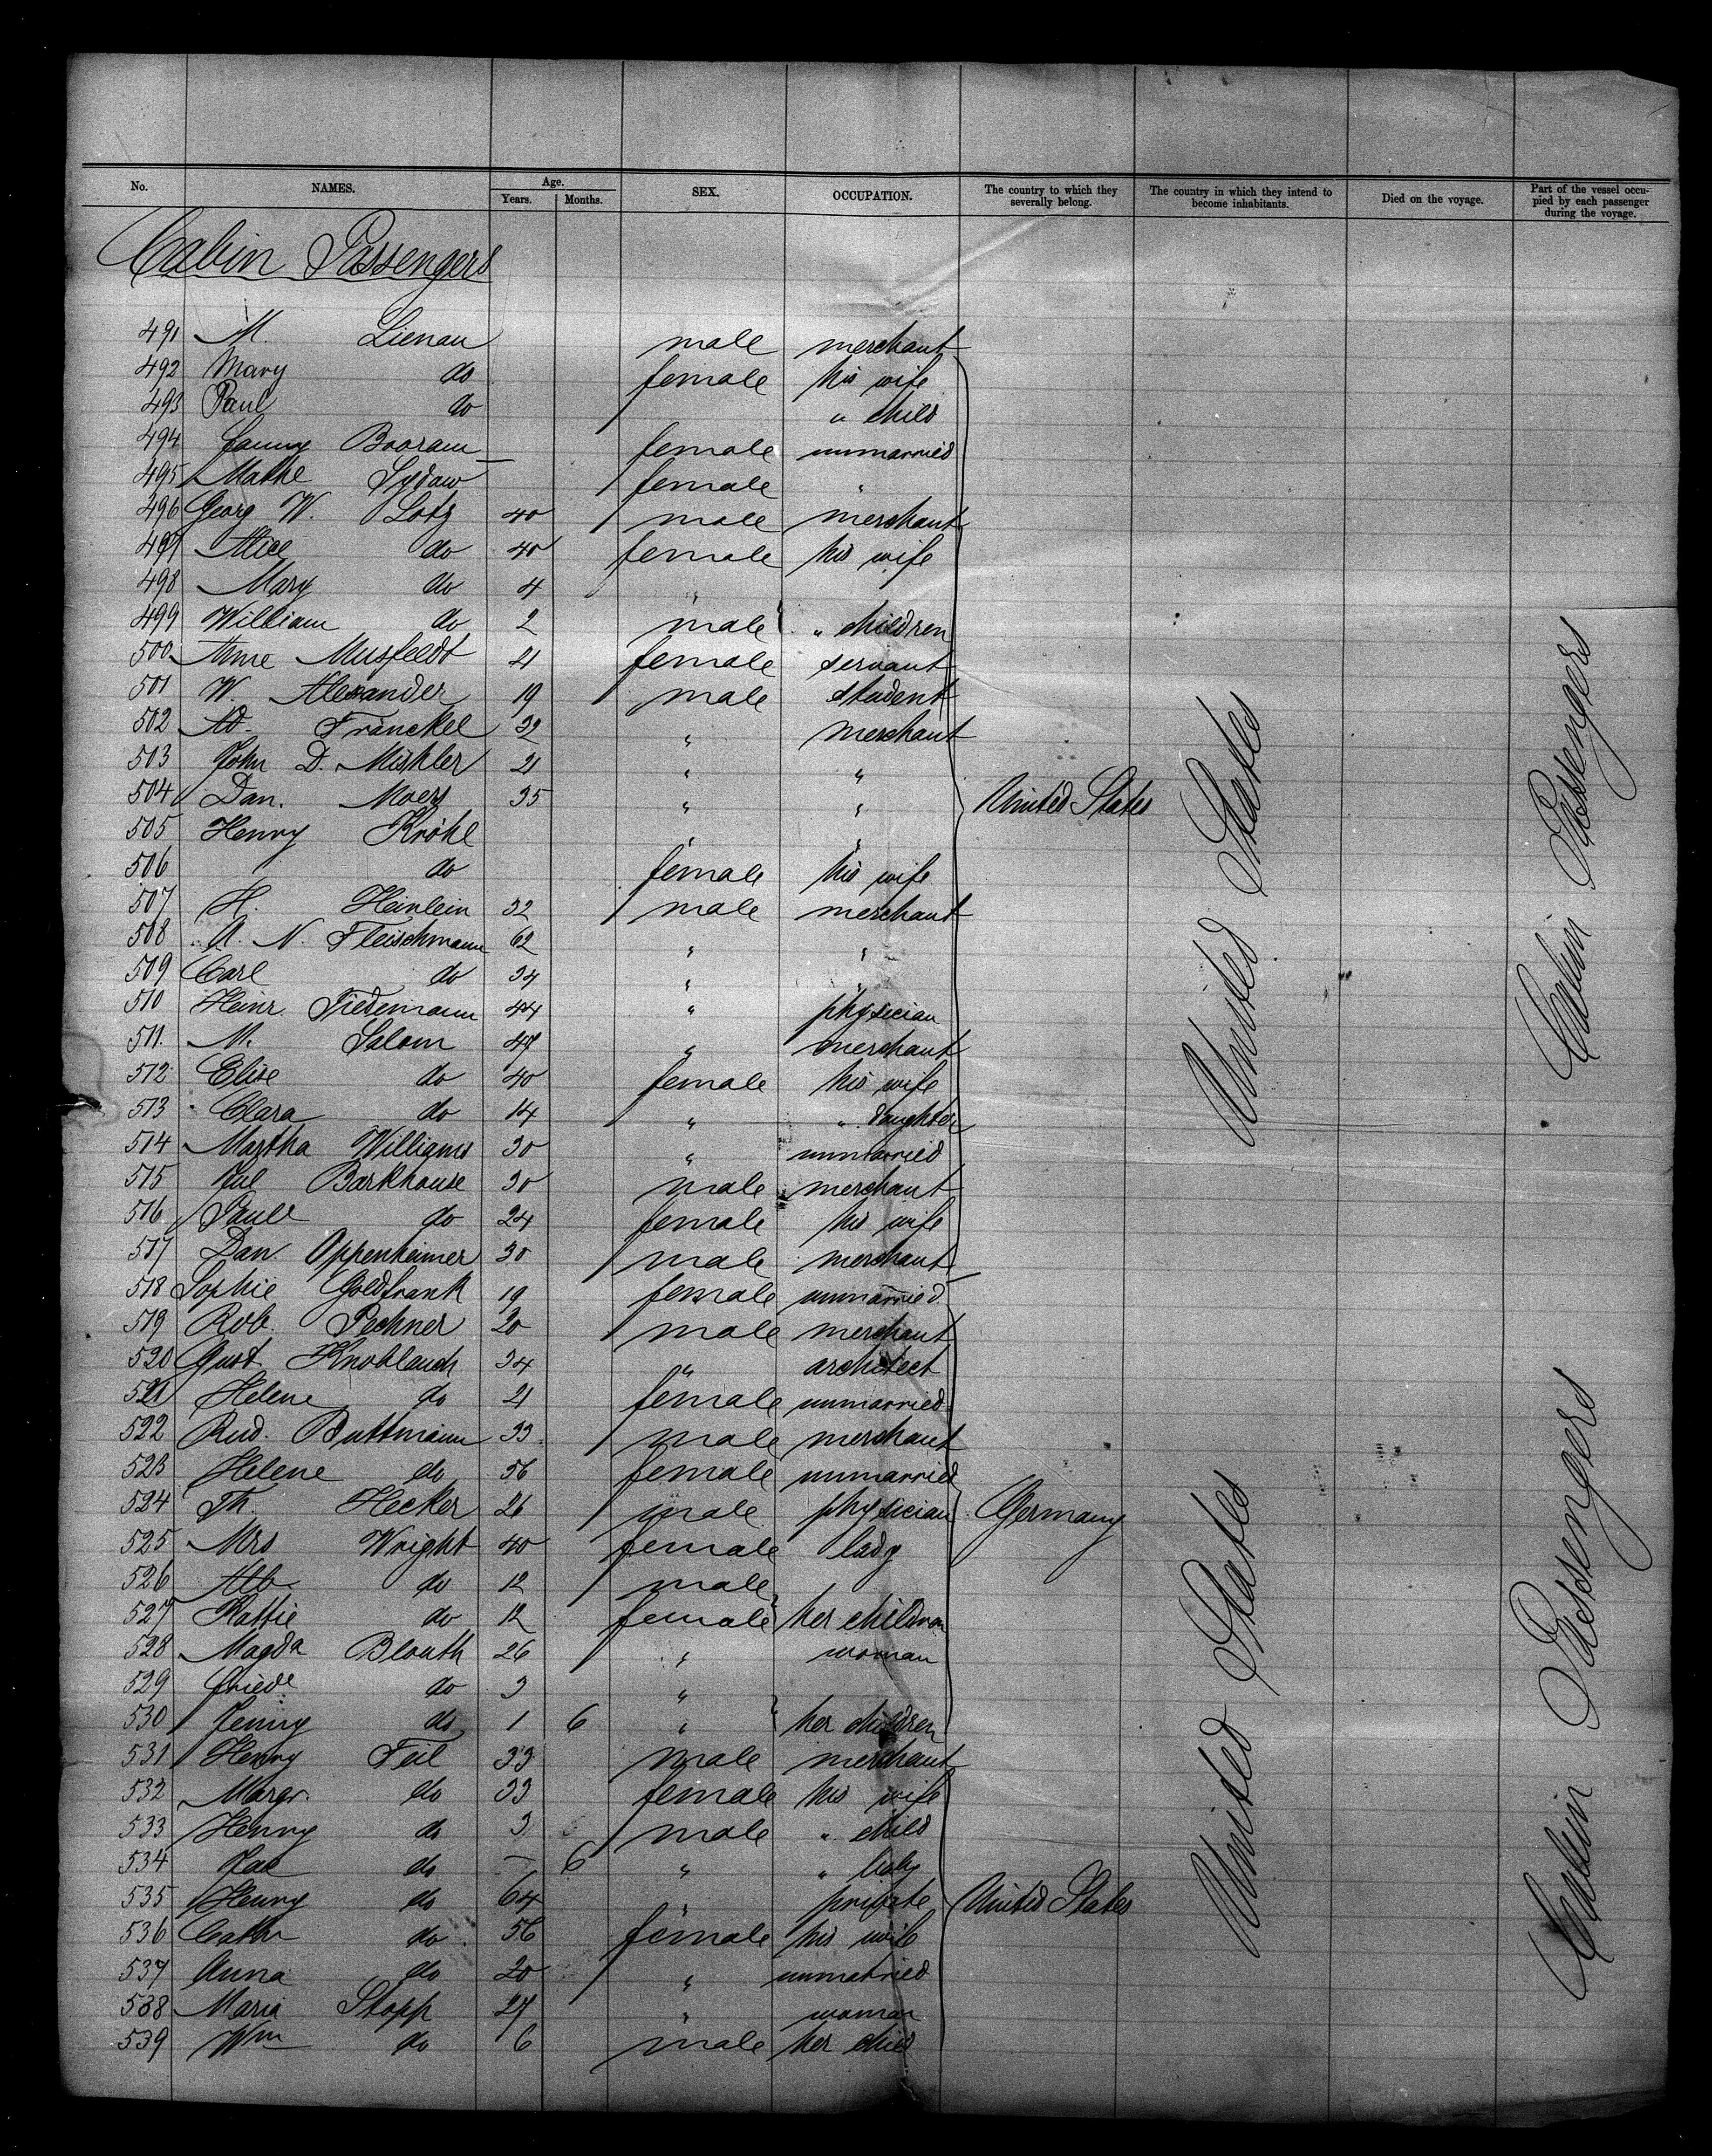 No. NAMES. Age. Years. Months. SEX. OCCUPATION. The country to which they severally belong. The country in which they intend to become inhabitants. Died on the voyage. Part of the vessel occupied by each passenger during the voyage.
Cabin Passengers
491 M. Lienau male merchant
492 Mary do female his wife
493 Paul do " child
494 Fanny Booraem female unmarried
495 female "
496 Georg W. Lotz 40 male merchant
497 Alice do 40 female his wife
498 Mary do 4 "
499 William do 2 male " children
500 Musfeldt 21 female servant
501 W Alexander 19 male student
502 Ad. Fränckel 32 " merchant
503 John D. Mishler 21 " "
504 Dan. Moers 35 " " United States
505 Henry Kröhl " "
506 do female his wife
507 H. Heinlein 32 male merchant
508 A. N. Fleischmann 62 " "
509 Carl do 34 " "
510 Heinr. Tiedemann 44 " physician
511. M. Salom 47 " merchant
512 Elise do 40 female his wife
513 Clara do 14 " " daughter
514 Martha Williams 30 " unmarried
515 Jul Barkhouse 30 male merchant
516 Paule do 24 female his wife
517 Dan. Oppenheimer 30 male merchant
518 Sophie Goldfrank 19 female unmarried
519 Rob. Pechner 20 male merchant
520 Gust. Knoblauch 34 " architect
521 Helene do 21 female unmarried
522 Rud. Buttmann 33 male merchant
523 Helene do 56 female unmarried
524 Th. Hecker 26 male physician Germany
525 Mrs Wright 40 female lady
526 Alb do 12 male
527 Kattie do 12 female her children
528 Magda Blauth 26 " woman
529 Friede do 3 "
530 Jenny do 1 6 " her children
531 Henry Feil 33 male merchant
532 Margr. do 33 female his wife
533 Henry do 3 male " child
534 Jac do – 6 " " baby
535 Henry do 64 " private United States
536 Cath do 56 female his wife
537 Anna do 20 " unmarried
538 Maria Stopp 27 " woman
539 Wm do 6 male her child
United States
United States
Cabin Passengers
Cabin Passengers